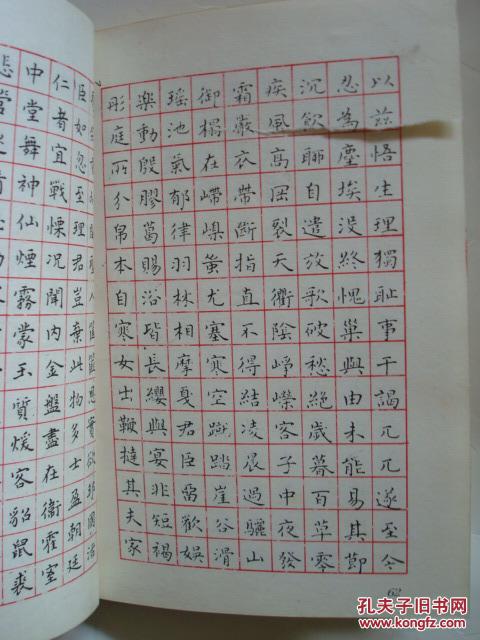 以茲悟生理獨恥事干謁兀兀遂至今
忍為塵埃沒終愧巢與由未能易其節
沉飲聊自遣放歌破愁絕歲暮百草零
疾風高岡裂天衢陰崢嶸客子中夜發
霜嚴衣帶斷指直不得結凌晨過驪山
御榻在嵽嵲蚩尤塞寒空蹴踏崖谷滑
瑤池氣郁律羽林相摩戛君臣留歡娛
樂動殷膠葛賜浴皆長纓與宴非短褐
彤庭所分帛本自寒女出鞭撻其夫家
62
人筐篚恩實欲邦國活
臣如忽至理君豈棄此物多士盈朝廷
仁者宜戰慄況聞內金盤盡在衛霍室
中堂舞神仙煙霧蒙玉質煖客貂鼠裘
悲管逐清
孔夫子旧书网